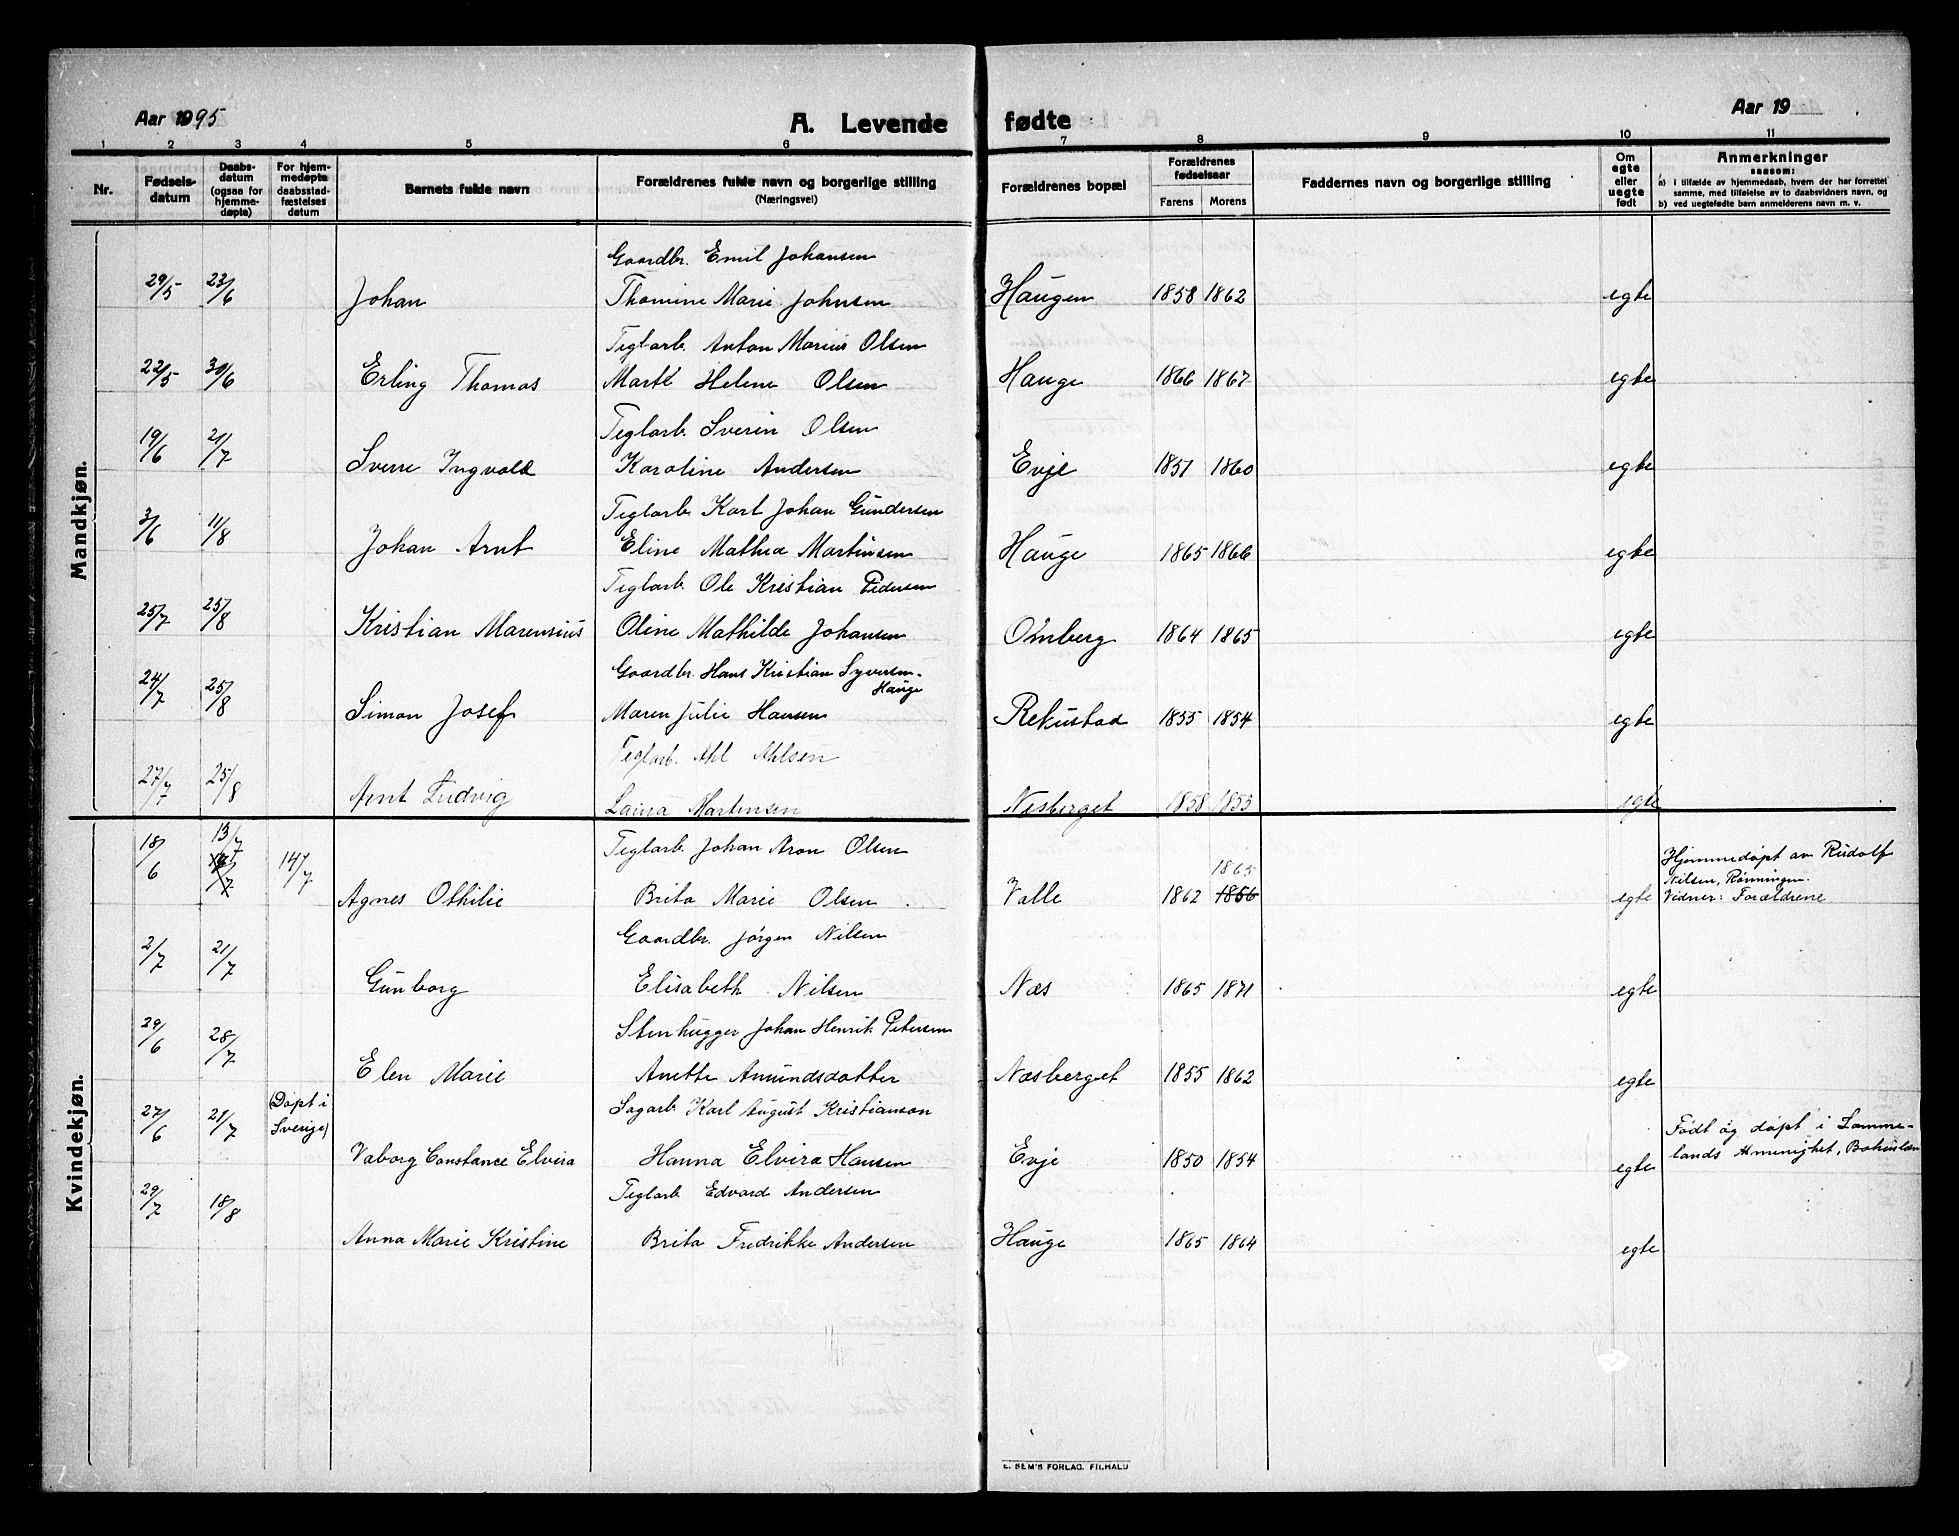 Aar 1895
A. Levende fødte
Aar 19
1 2 3 4 5 6 7 8 9 10 11
Nr.
Fødselsdatum
Daabsdatum (ogsaa for hjemmedøpte)
For hjemmedøpte daabsstadfæstelses datum
Barnets fulde navn
Forældrenes fulde navn og borgerlige stilling (Næringsvei)
Forældrenes bopæl
Forældrenes fødselsaar
Farens Morens
Faddernes navn og borgerlige stilling
Om egte eller uegte født
Anmerkninger
saasom:
a) I tilfælde av hjemmedaab, hvem der har forrettet samme, med tilføielse av to daabsvidners navn, og
b) ved uegtefødte barn anmelderens navn m. v.
Mandkjøn.
Gaardbr. Emil Johansen
29/5 23/6 Johan Thomine Marie Johnsen Haugen 1858 1862 egte
Teglarb. Anton Marius Olsen
22/5 30/6 Erling Thomas Marte Helene Olsen Hauge 1866 1867 egte
Teglarb. Sverin Olsen
19/6 21/7 Sverre Ingvald Karoline Andersen Evje 1857 1860 egte
Teglarb. Karl Johan Gundersen
3/6 11/8 Johan Arnt Eline Mathea Martinsen Hauge 1865 1866 egte
Teglarb. Ole Kristian Pedersen
25/7 25/8 Kristian Marensius Oline Mathilde Johansen Omberg 1864 1865 egte
Gaardbr. Hans Kristian Syversen-
Hauge
24/7 25/8 Simon Josef Maren Julie Hansen Rekustad 1855 1854 egte
Teglarb. Ahl Ahlsen
27/7 25/8 Arnt Ludvig Laura Martensen Nesberget 1858 1853 egte
Kvindekjøn.
Teglarb. Johan Aron Olsen
18/6 13/7 14/7 Agnes Othilie Brita Marie Olsen Valle 1862 1865 1856 egte
Hjemmedøpt av Rudolf
Nilsen, Rønningen.
Vidner: Forældrene
Gaardbr. Jørgen Nilsen
2/7 21/7 Gunborg Elisabeth Nilsen Næs 1865 1871 egte
Stenhugger Johan Henrik Petersen
29/6 28/7 Elen Marie Anette Amundsdatter Næsberget 1855 1862 egte
Sagarb. Karl August Kristianson
27/6 21/7 (Døpt i
Sverige) Vaborg Constance Elvira Hanna Elvira Hansen Evje 1850 1854 egte
Født og døpt i
lands Bohuslän
Teglarb. Edvard Andersen
29/7 18/8 Anna Marie Kristine Brita Fredrikke Andersen Hauge 1865 1864 egte
E. SEM'S FORLAG, F.HALD